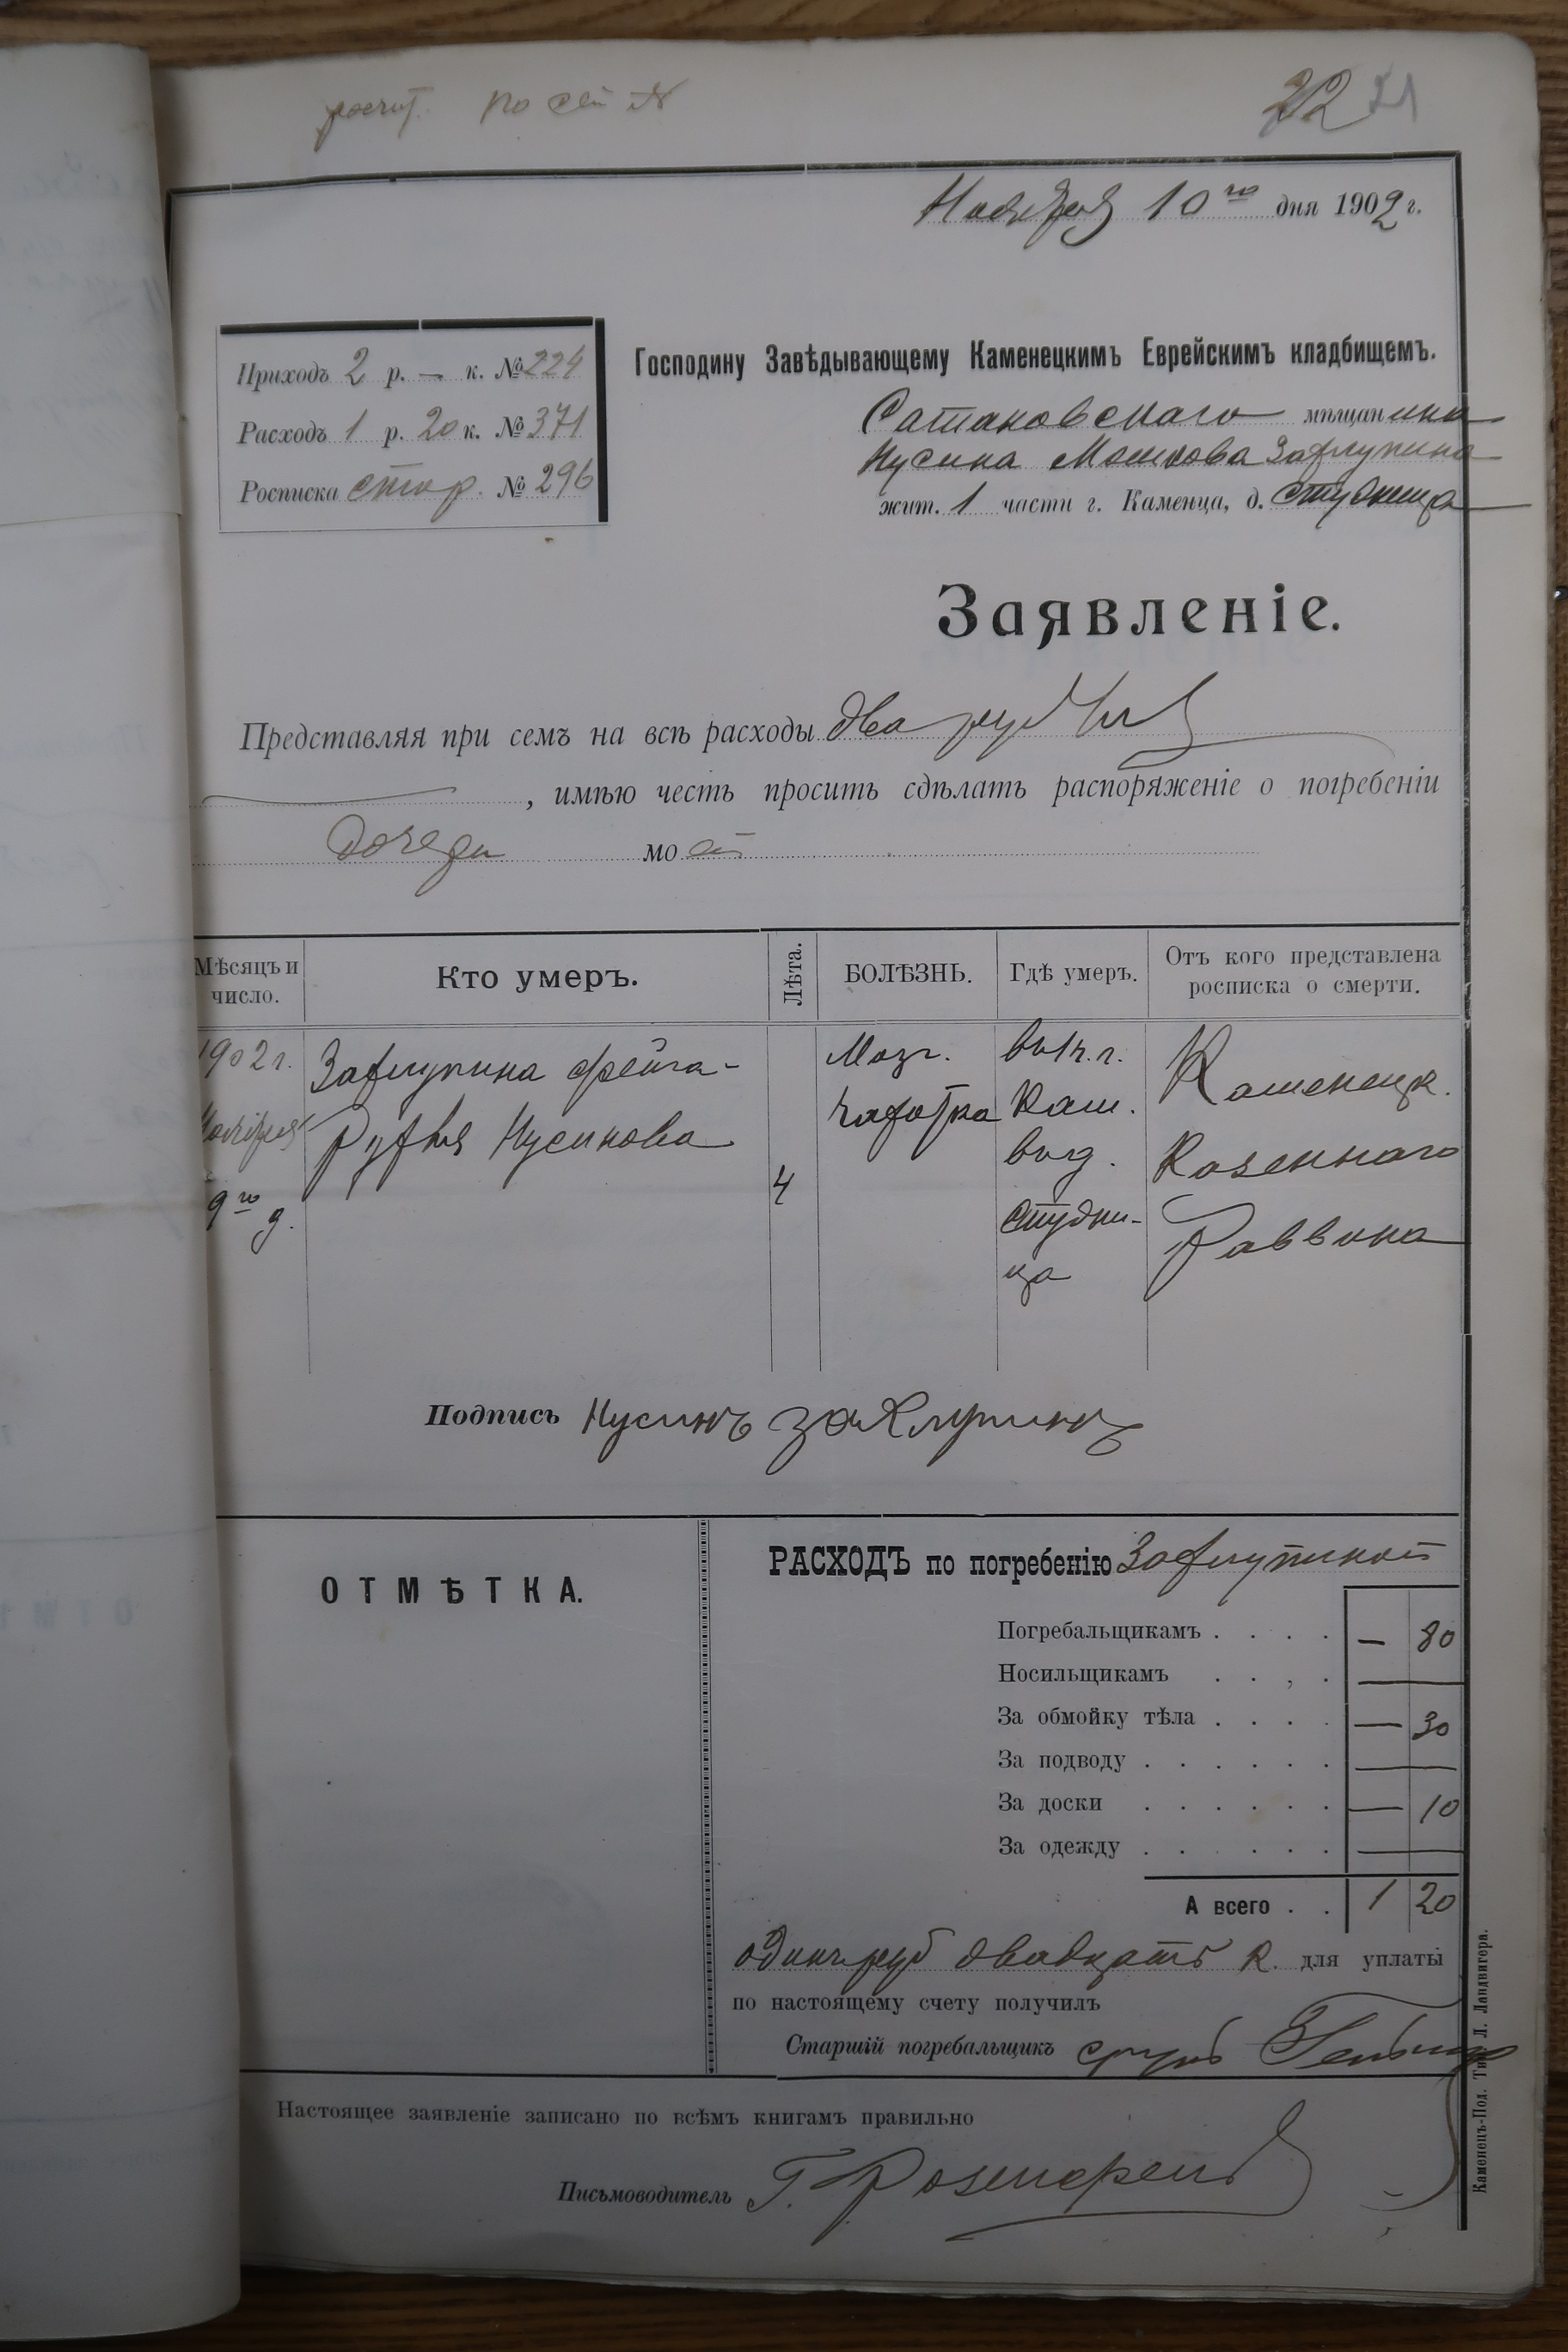 22 21
Ноября 10го дня 1902 г.
Приходъ 2 р. — к. № 224
Расходъ 1 р. 20 к. № 371
Росписка стор. № 296
Господину Завѣдывающему Каменецкимъ Еврейскимъ кладбищемъ.
Сатановскаго мѣщанина
Нусина Мошкова Заклупина
жит. 1 части г. Каменца, д. Студница
Заявленіе.
Представляя при семъ на всѣ расходы два рубли
, имѣю честь просить сдѣлать распоряженіе о погребеніи
дочери моей
Мѣсяцъ и число. Кто умеръ. Лѣта. БОЛѢЗНЬ. Гдѣ умеръ. Отъ кого представлена росписка о смерти.
1902 г. Заклупина Фейга- Мозг. въ 1 ч. г. Каменецк.
Ноября Рухля Нусинова чахотка Кам. Казеннаго
9го д. 4 въ д. Раввина
Студни-
ца
Подпись Нусинъ Заклупинъ
ОТМѢТКА.
РАСХОДЪ по погребенію Заклупиной
Погребальщикамъ . . . . — 80
Носильщикамъ . . , . —
За обмойку тѣла . . . . — 30
За подводу . . . . . . —
За доски . . . . . . — 10
За одежду . . . . . . —
А всего . . 1 20
одинъ руб двадцать к. для уплаты
по настоящему счету получилъ
Старшій погребальщикъ
Настоящее заявленіе записано по всѣмъ книгамъ правильно
Письмоводитель Г. Розенкренц
Каменецъ-Под. Тип. Л. Ландвигера.